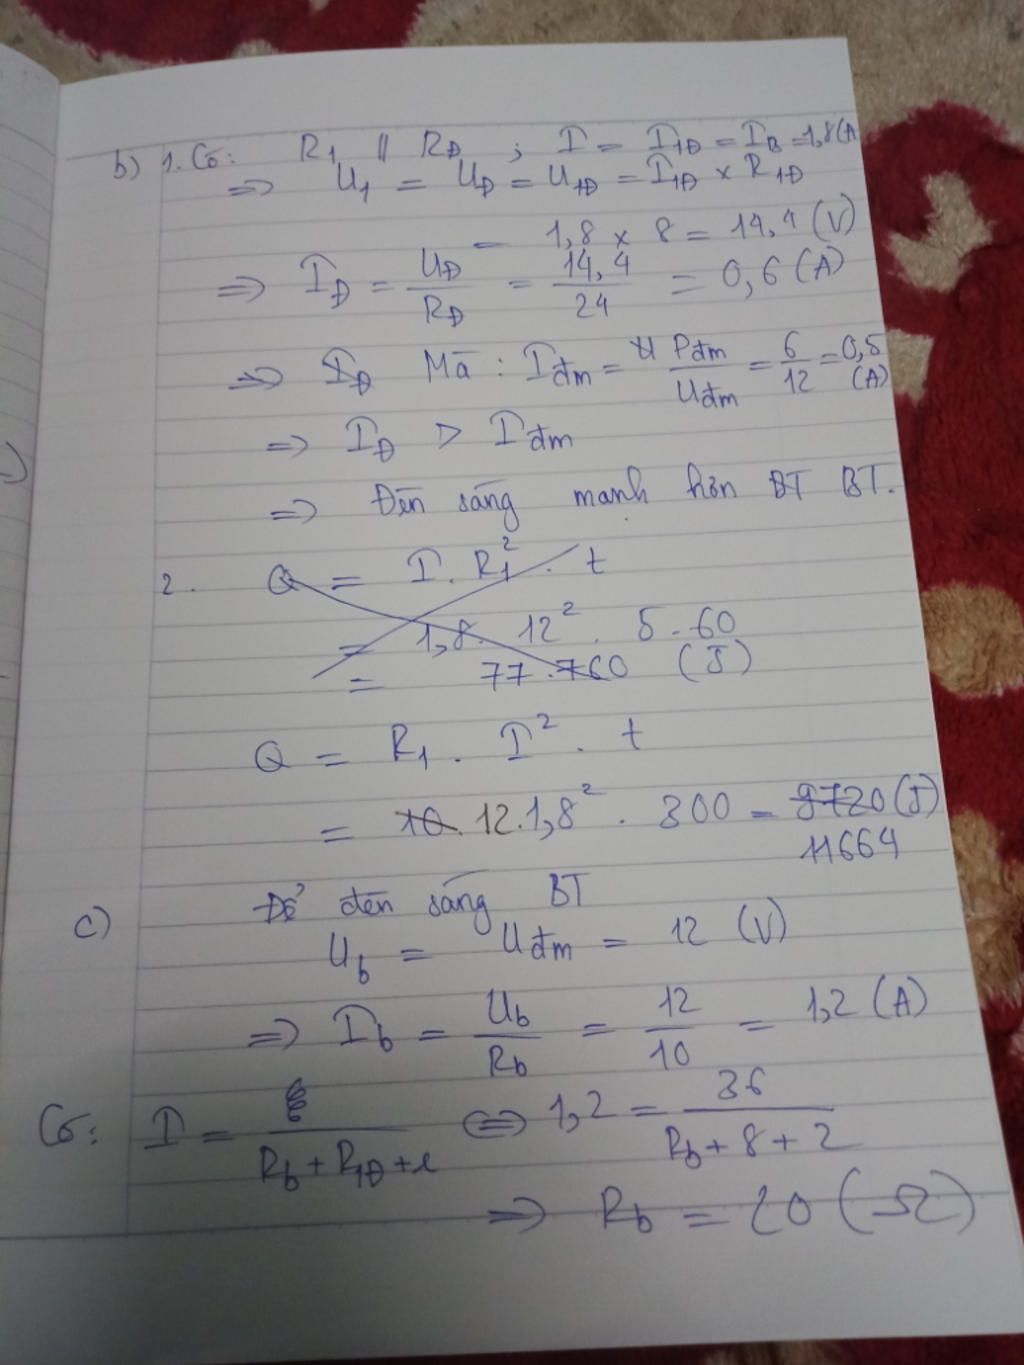 b) 1. Có: R₁ // R_Đ ; I = I_1Đ = I_B = 1,8 (A
=> U₁ = U_Đ = U_1Đ = I_1Đ × R_1Đ
= 1,8 × 8 = 14,4 (V)
=> I_Đ = U_Đ / R_Đ = 14,4 / 24 = 0,6 (A)
=> I_Đ Mà : I_đm = P_đm / U_đm = 6 / 12 = 0,5 (A)
=> I_Đ > I_đm
=> Đèn sáng manh hơn BT BT.
2. Q = I . R₁² . t
= 1,8 . 12² . 5 . 60
= 77.760 (J)
Q = R₁ . I² . t
= 10. 12.1,8² . 300 = 9720 (J)
11664
c) Để đèn sáng BT
U_b = U_đm = 12 (V)
=> I_b = U_b / R_b = 12 / 10 = 1,2 (A)
Có: I = ξ / R_b + R_1Đ + r <=> 1,2 = 36 / R_b + 8 + 2
=> R_b = 20 (Ω)